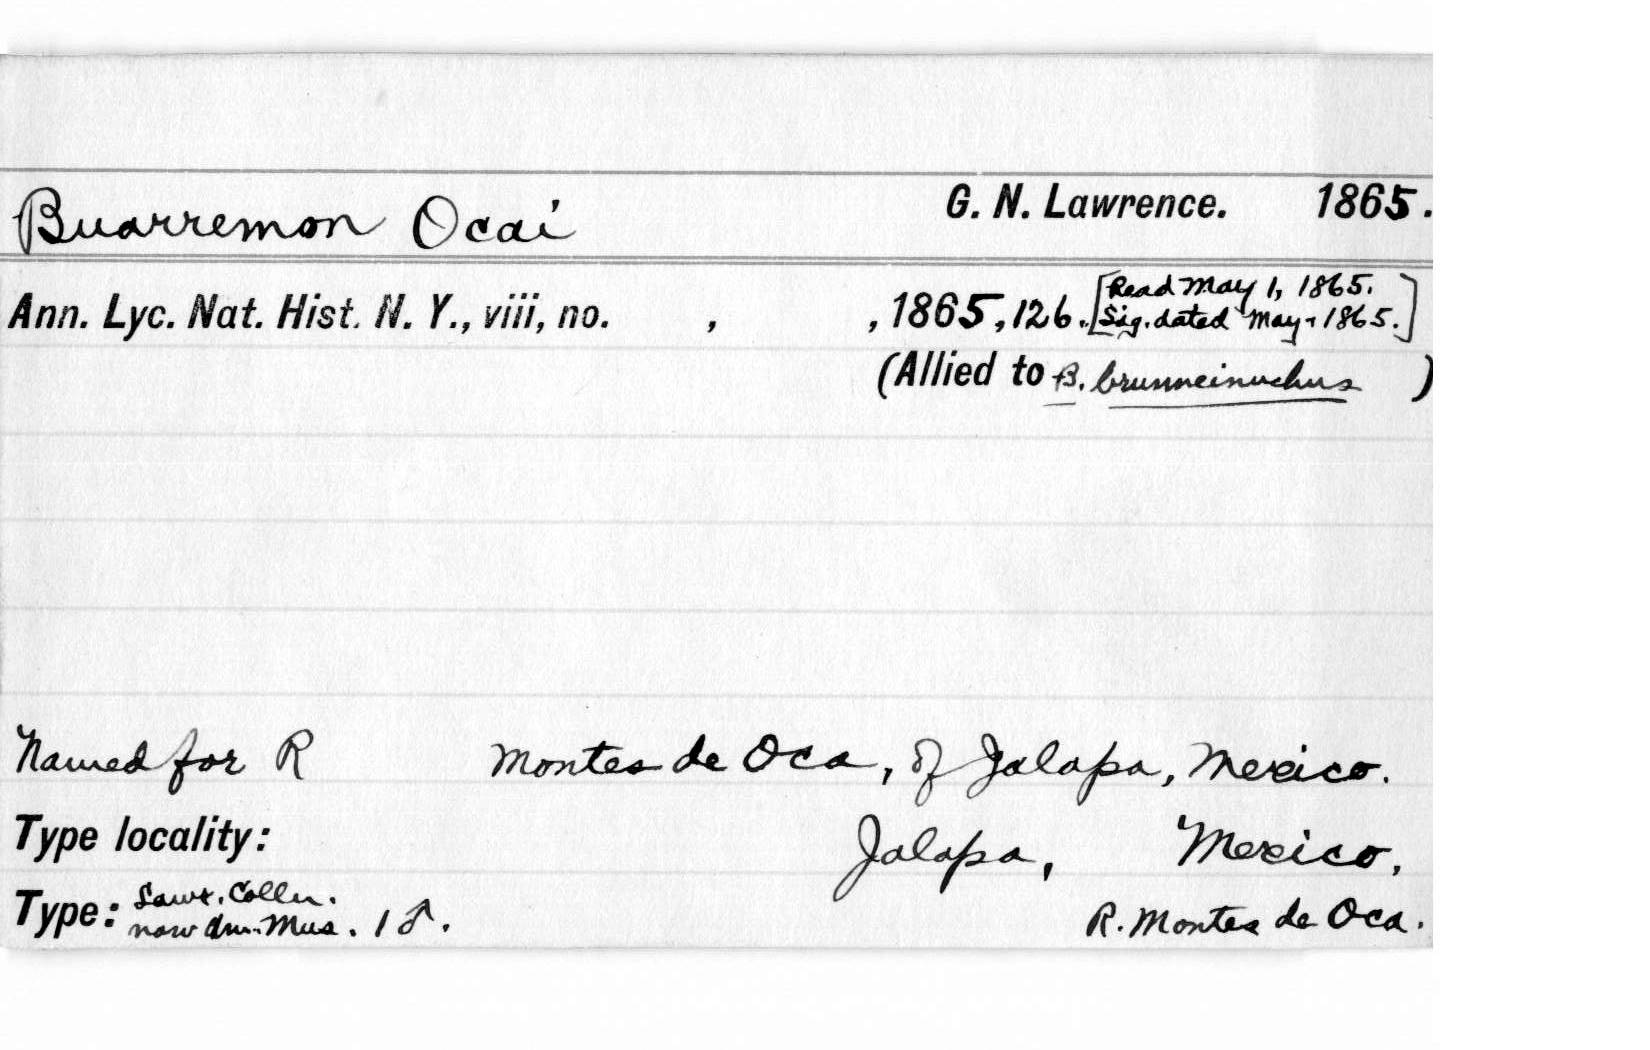 Buarremon Ocai G. N. Lawrence. 1865.
Ann. Lyc. Nat. Hist. N. Y., viii, no. , , 1865, 126. [Read May 1, 1865.
Sig. dated May, 1865.]
(Allied to B. brunneinuchus )
Named for R Montes de Oca, of Jalapa, Mexico.
Type locality: Jalapa, Mexico,
Type: Lawr. Colln.
now Am. Mus. 1 ♂. R. Montes de Oca.